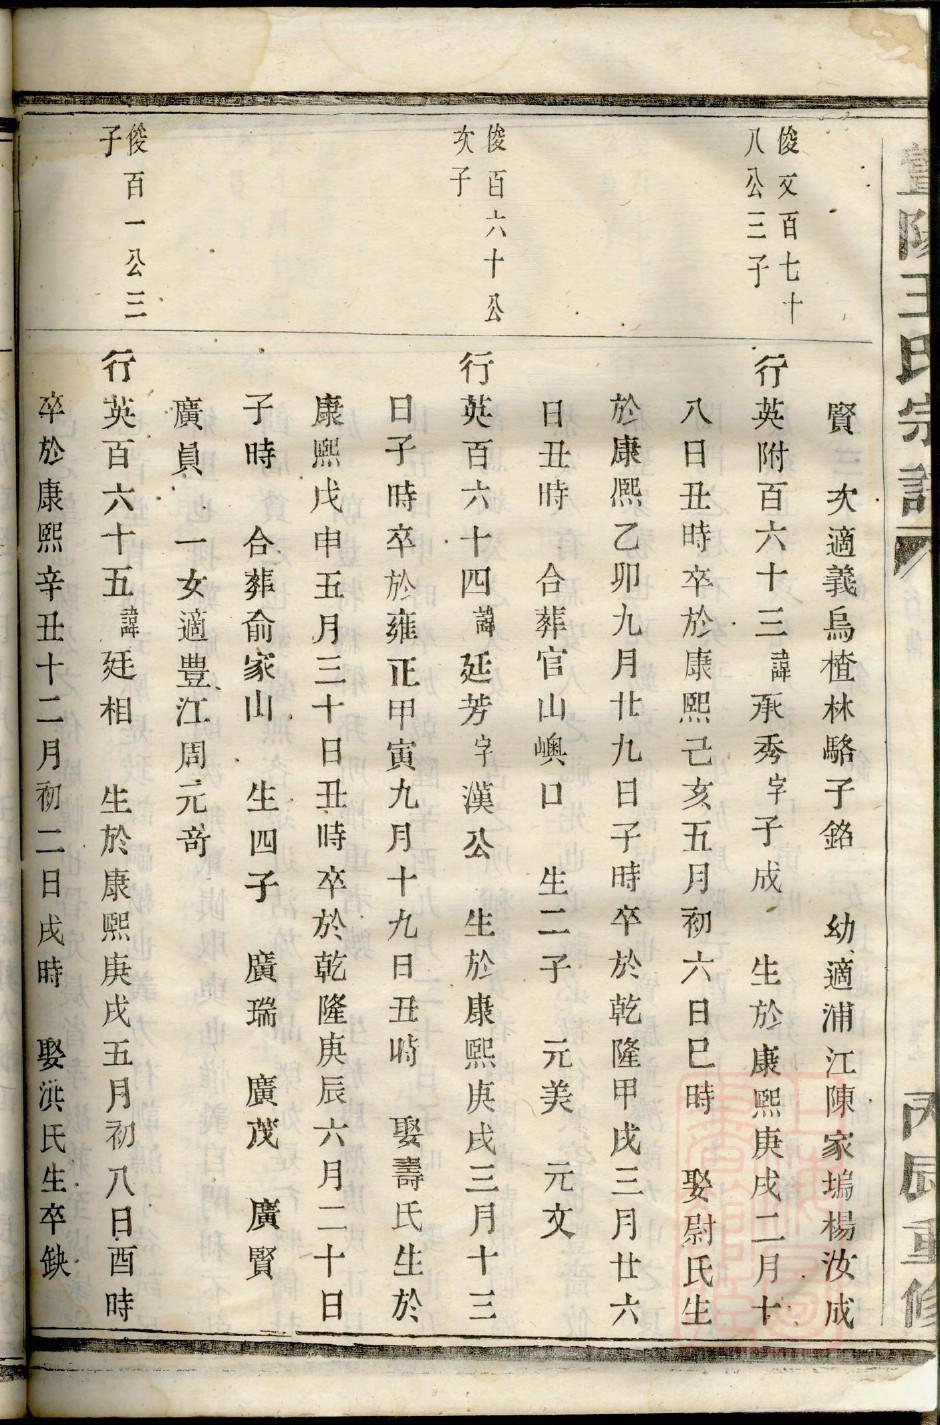 暨陽王氏宗譜
丙辰重修
賢 次適義烏楂林駱子銘 幼適浦江陳家塢楊汝成
俊文百七十
八公三子
行英附百六十三諱承秀字子成 生於康熙庚戌二月十
八日丑時卒於康熙己亥五月初六日巳時 娶尉氏生
於康熙乙卯九月廿九日子時卒於乾隆甲戌三月廿六
日丑時 合葬官山㠗口 生二子 元美 元文
俊百六十公
次子
行英百六十四諱廷芳字漢公 生於康熙庚戌三月十三
日子時卒於雍正甲寅九月十九日丑時 娶壽氏生於
康熙戊申五月三十日丑時卒於乾隆庚辰六月二十日
子時 合葬俞家山 生四子 廣瑞 廣茂 廣賢
廣員 一女適豊江周元竒
俊百一公三
子
行英百六十五諱廷相 生於康熙庚戌五月初八日酉時
卒於康熙辛丑十二月初二日戌時 娶洪氏生卒缺